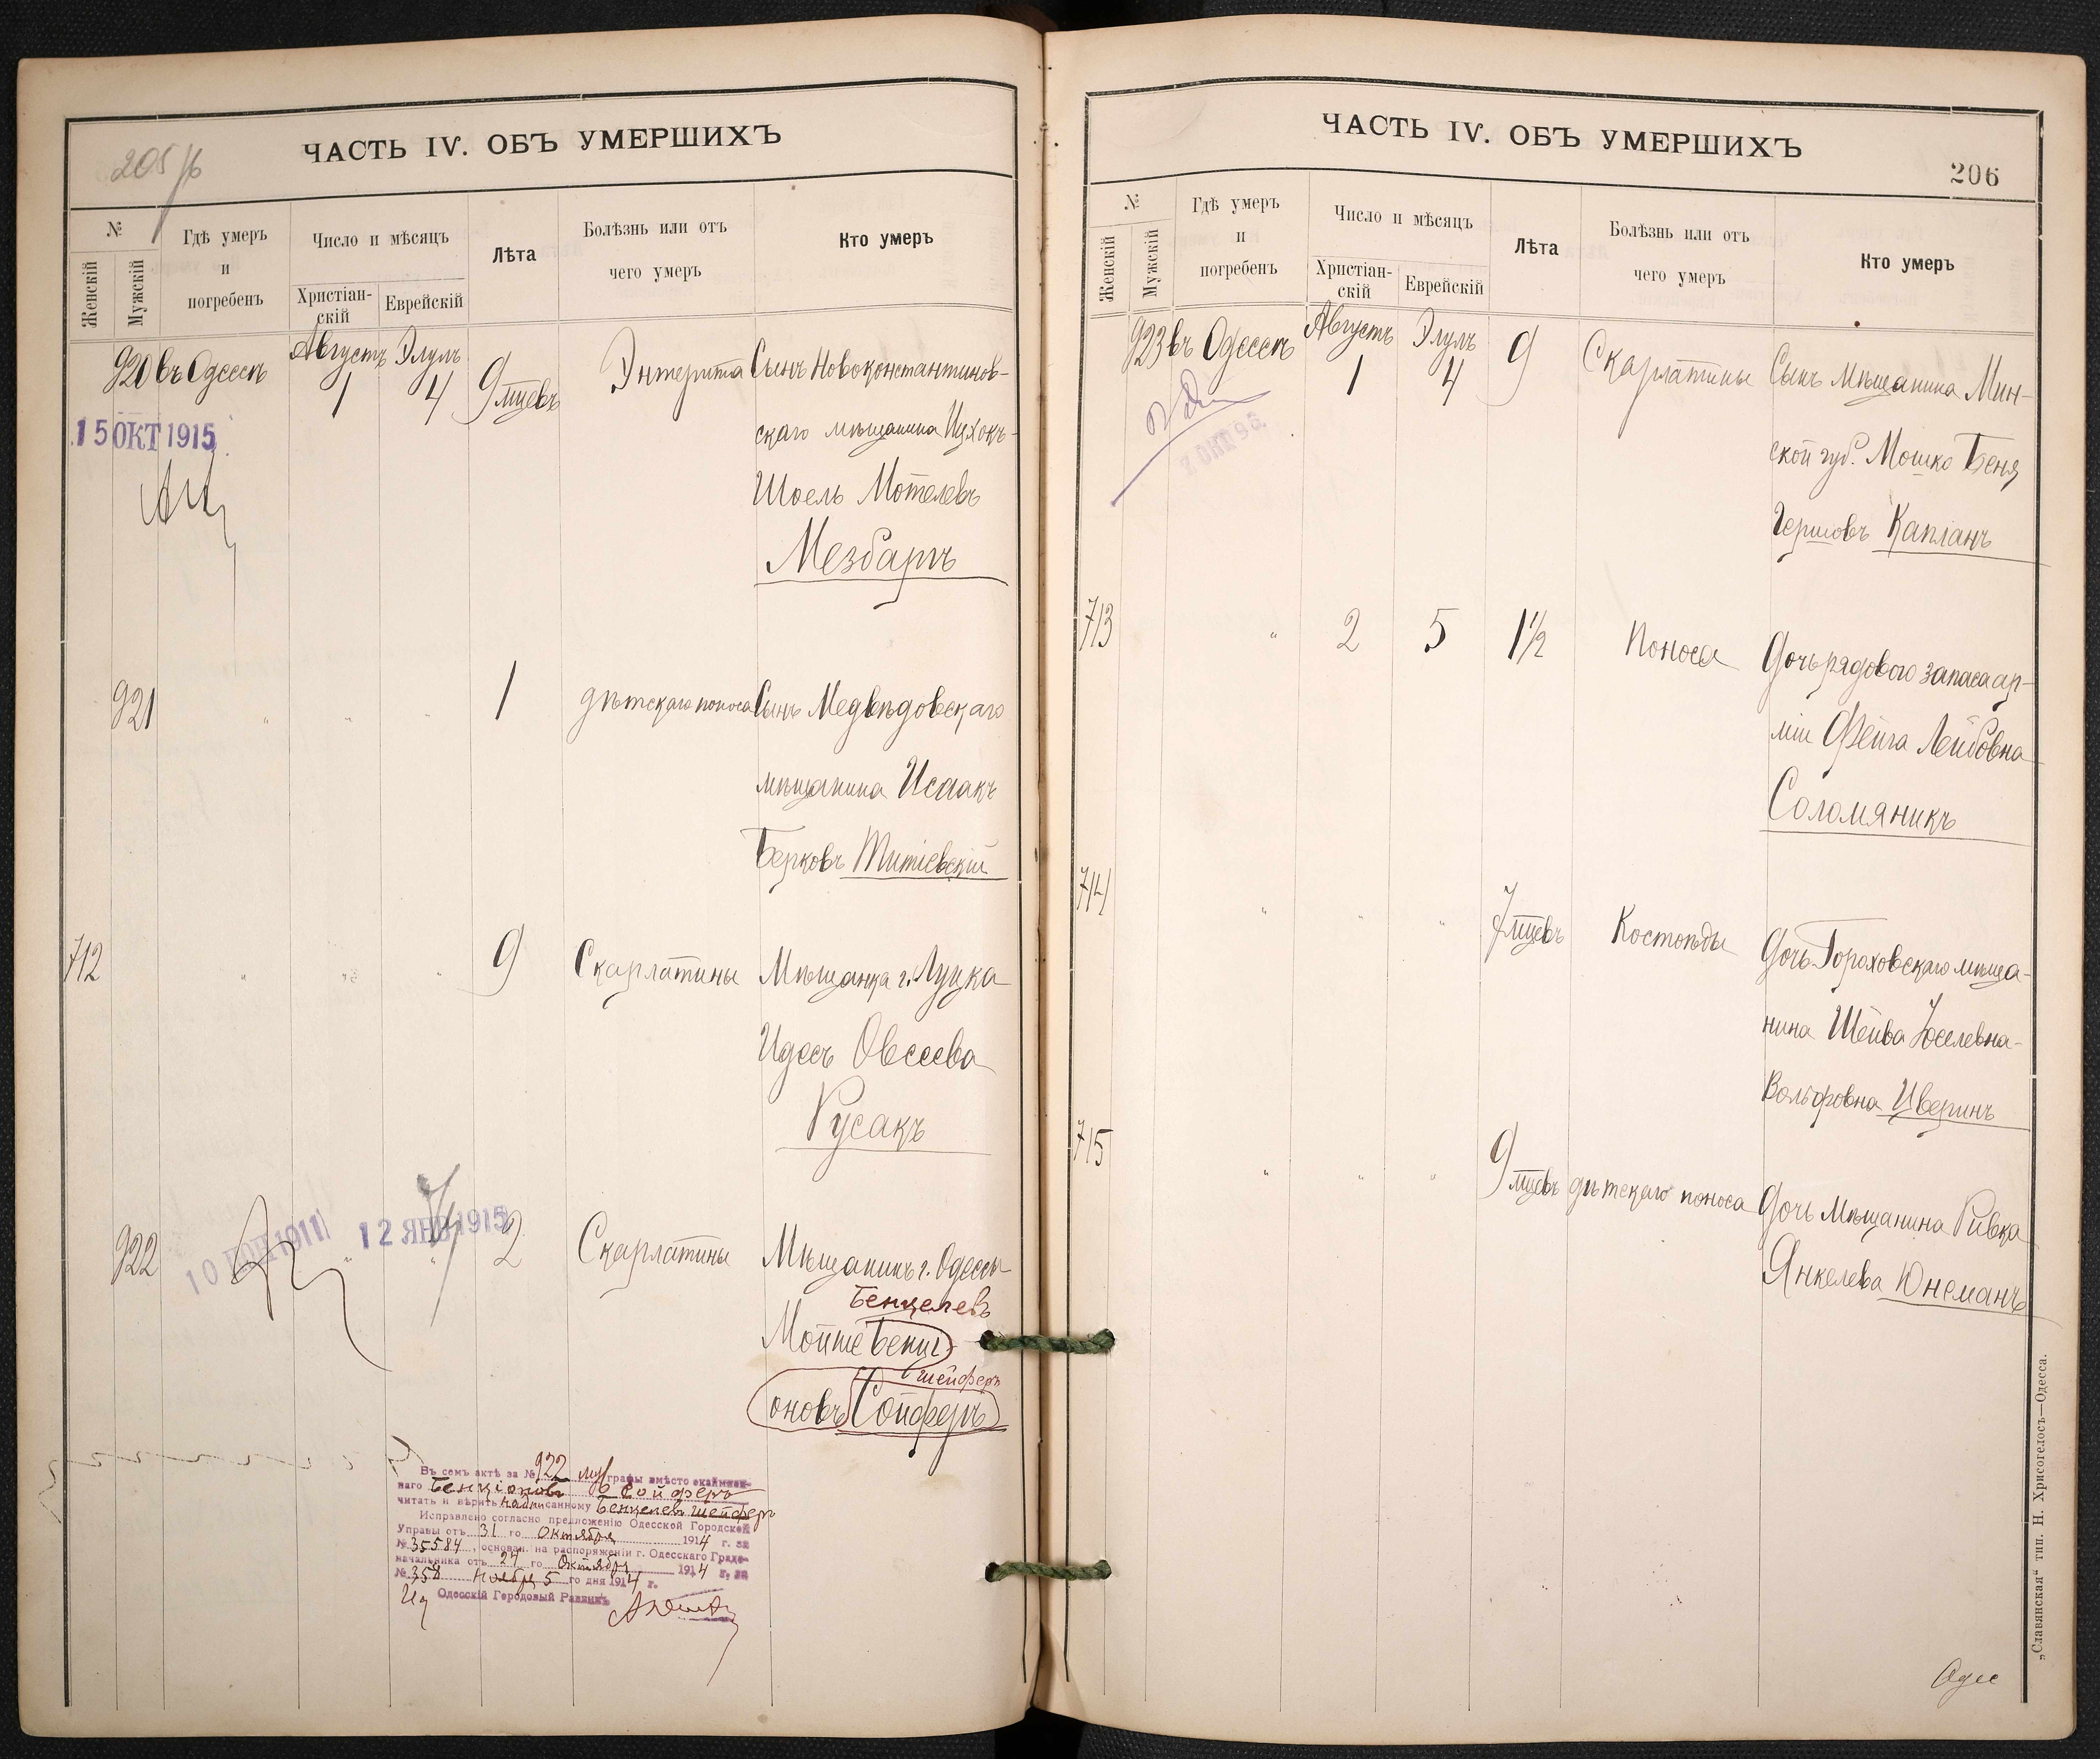 205/6
ЧАСТЬ IV. ОБЪ УМЕРШИХЪ
№
Женскій
Мужскій
Гдѣ умеръ
и
погребенъ
Число и мѣсяцъ
Христіан-
скій
Еврейскій
Лѣта
Болѣзнь или отъ
чего умеръ
Кто умеръ
920 въ Одессѣ Августъ 1 Элулъ 4 9 мцевъ Энтерита Сынъ Новоконстантинов-
скаго мѣщанина Ицхокъ-
Шоель Мотелевъ
Мезбаръ
15 ОКТ 1915
921 " " " 1 дѣтскаго поноса Сынъ Медвѣдовскаго
мѣщанина Исаакъ
Берковъ Титіевскій
712 " " " 9 Скарлатины Мѣщанка г. Луцка
Идесъ Овсеева
Русакъ
922 " " 2 Скарлатины Мѣщанинъ г. Одессы
Бенцелевъ
Мойше Бенці-
шейферъ
оновъ Сойферъ
12 ЯНВ 1915
Въ семъ актѣ за № 922 муж графы вмѣсто окаймлен-
наго Бенціоновъ Сойферъ
читать и вѣрить надписанному Бенцелевъ Шейферъ
Исправлено согласно предложенію Одесской Городской
Управы отъ 31 го Октября 1914 г. за
№ 35584, основан. на распоряженіи г. Одесскаго Градо-
начальника отъ 24 го Октября 1914 г. за
№ 358 Ноября 5 го дня 1914 г.
Одесскій Городовый Раввинъ
ЧАСТЬ IV. ОБЪ УМЕРШИХЪ
206
№
Женскій
Мужскій
Гдѣ умеръ
и
погребенъ
Число и мѣсяцъ
Христіан-
скій
Еврейскій
Лѣта
Болѣзнь или отъ
чего умеръ
Кто умеръ
923 въ Одессѣ Августъ 1 Элулъ 4 9 Скарлатины Сынъ мѣщанина Мин-
ской губ. Мошко Беня
Гершовъ Капланъ
713 " 2 5 1½ Поноса Дочь рядового запаса ар-
міи Фейга Лейбовна
Соломяникъ
714 " " " 7 мцевъ Костоѣды Дочь Гороховскаго мѣща-
нина Шейва Іоселевна-
Вольфовна Иверинъ
715 " " " 9 мцевъ дѣтскаго поноса Дочь мѣщанина Ривка
Янкелева Юнеманъ
Одес
„Славянская“ тип. Н. Хрисогелосъ—Одесса.